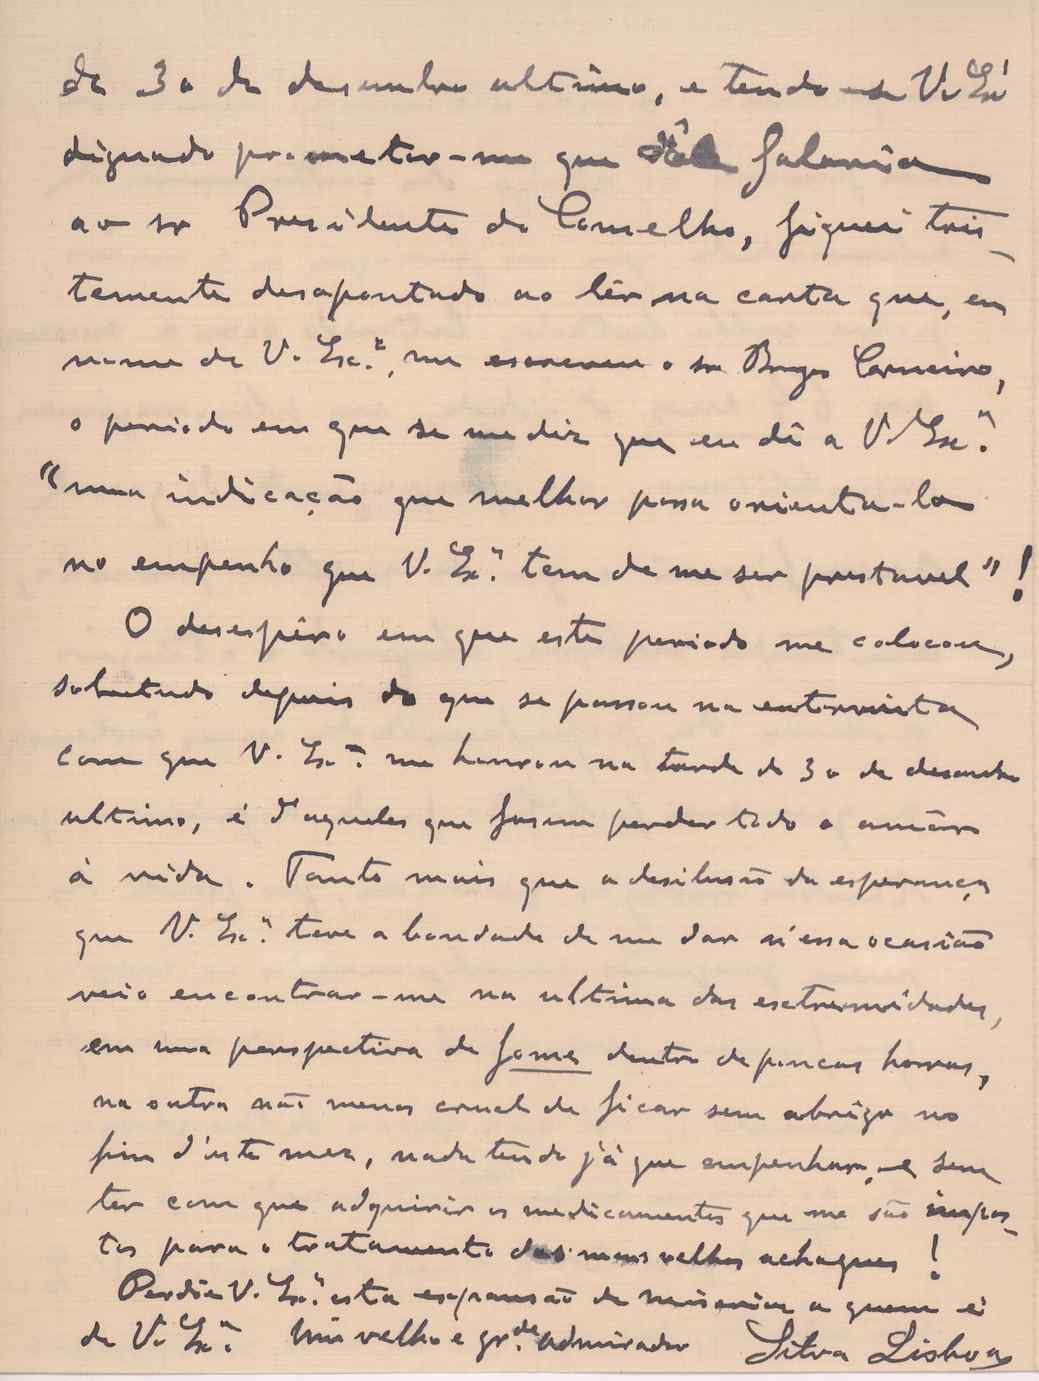 de 30 de desembro ultimo, e tendo-se V. Exª
dignado prometer-me que dêle falaria
ao sr Presidente do Conselho, fiquei tris-
temente desapontado ao lêr na carta que, em
nome de V. Exª, me escreveu o sr Borges Carneiro,
o periodo em que se me diz que eu dê a V. Exª
"uma indicação que melhor possa orienta-lo
no empenho que V. Exª tem de me ser prestavel"!
O desespêro em que este periodo me colocou,
sobretudo depois do que se passou na entrevista
com que V. Exª me honrou na tarde de 30 de desembro
ultimo, é d'aqueles que fasem perder todo o amôr
á vida. Tanto mais que a desilusão da esperança
que V. Exª teve a bondade de me dar n'essa ocasião
veio encontrar-me na ultima das extremidades,
em uma perspectiva de fome dentro de poucas horas,
na outra não menos cruel de ficar sem abrigo no
fim d'este mez, nada tendo já que empenhar, e sem
ter com que adquirir os medicamentos que me são impos-
tos para o tratamento dos meus velhos achaques!
Perdôe V. Exª esta expansão de miseria a quem é
de V. Exª Mtº velho e gr.de admirador Silva Lisboa